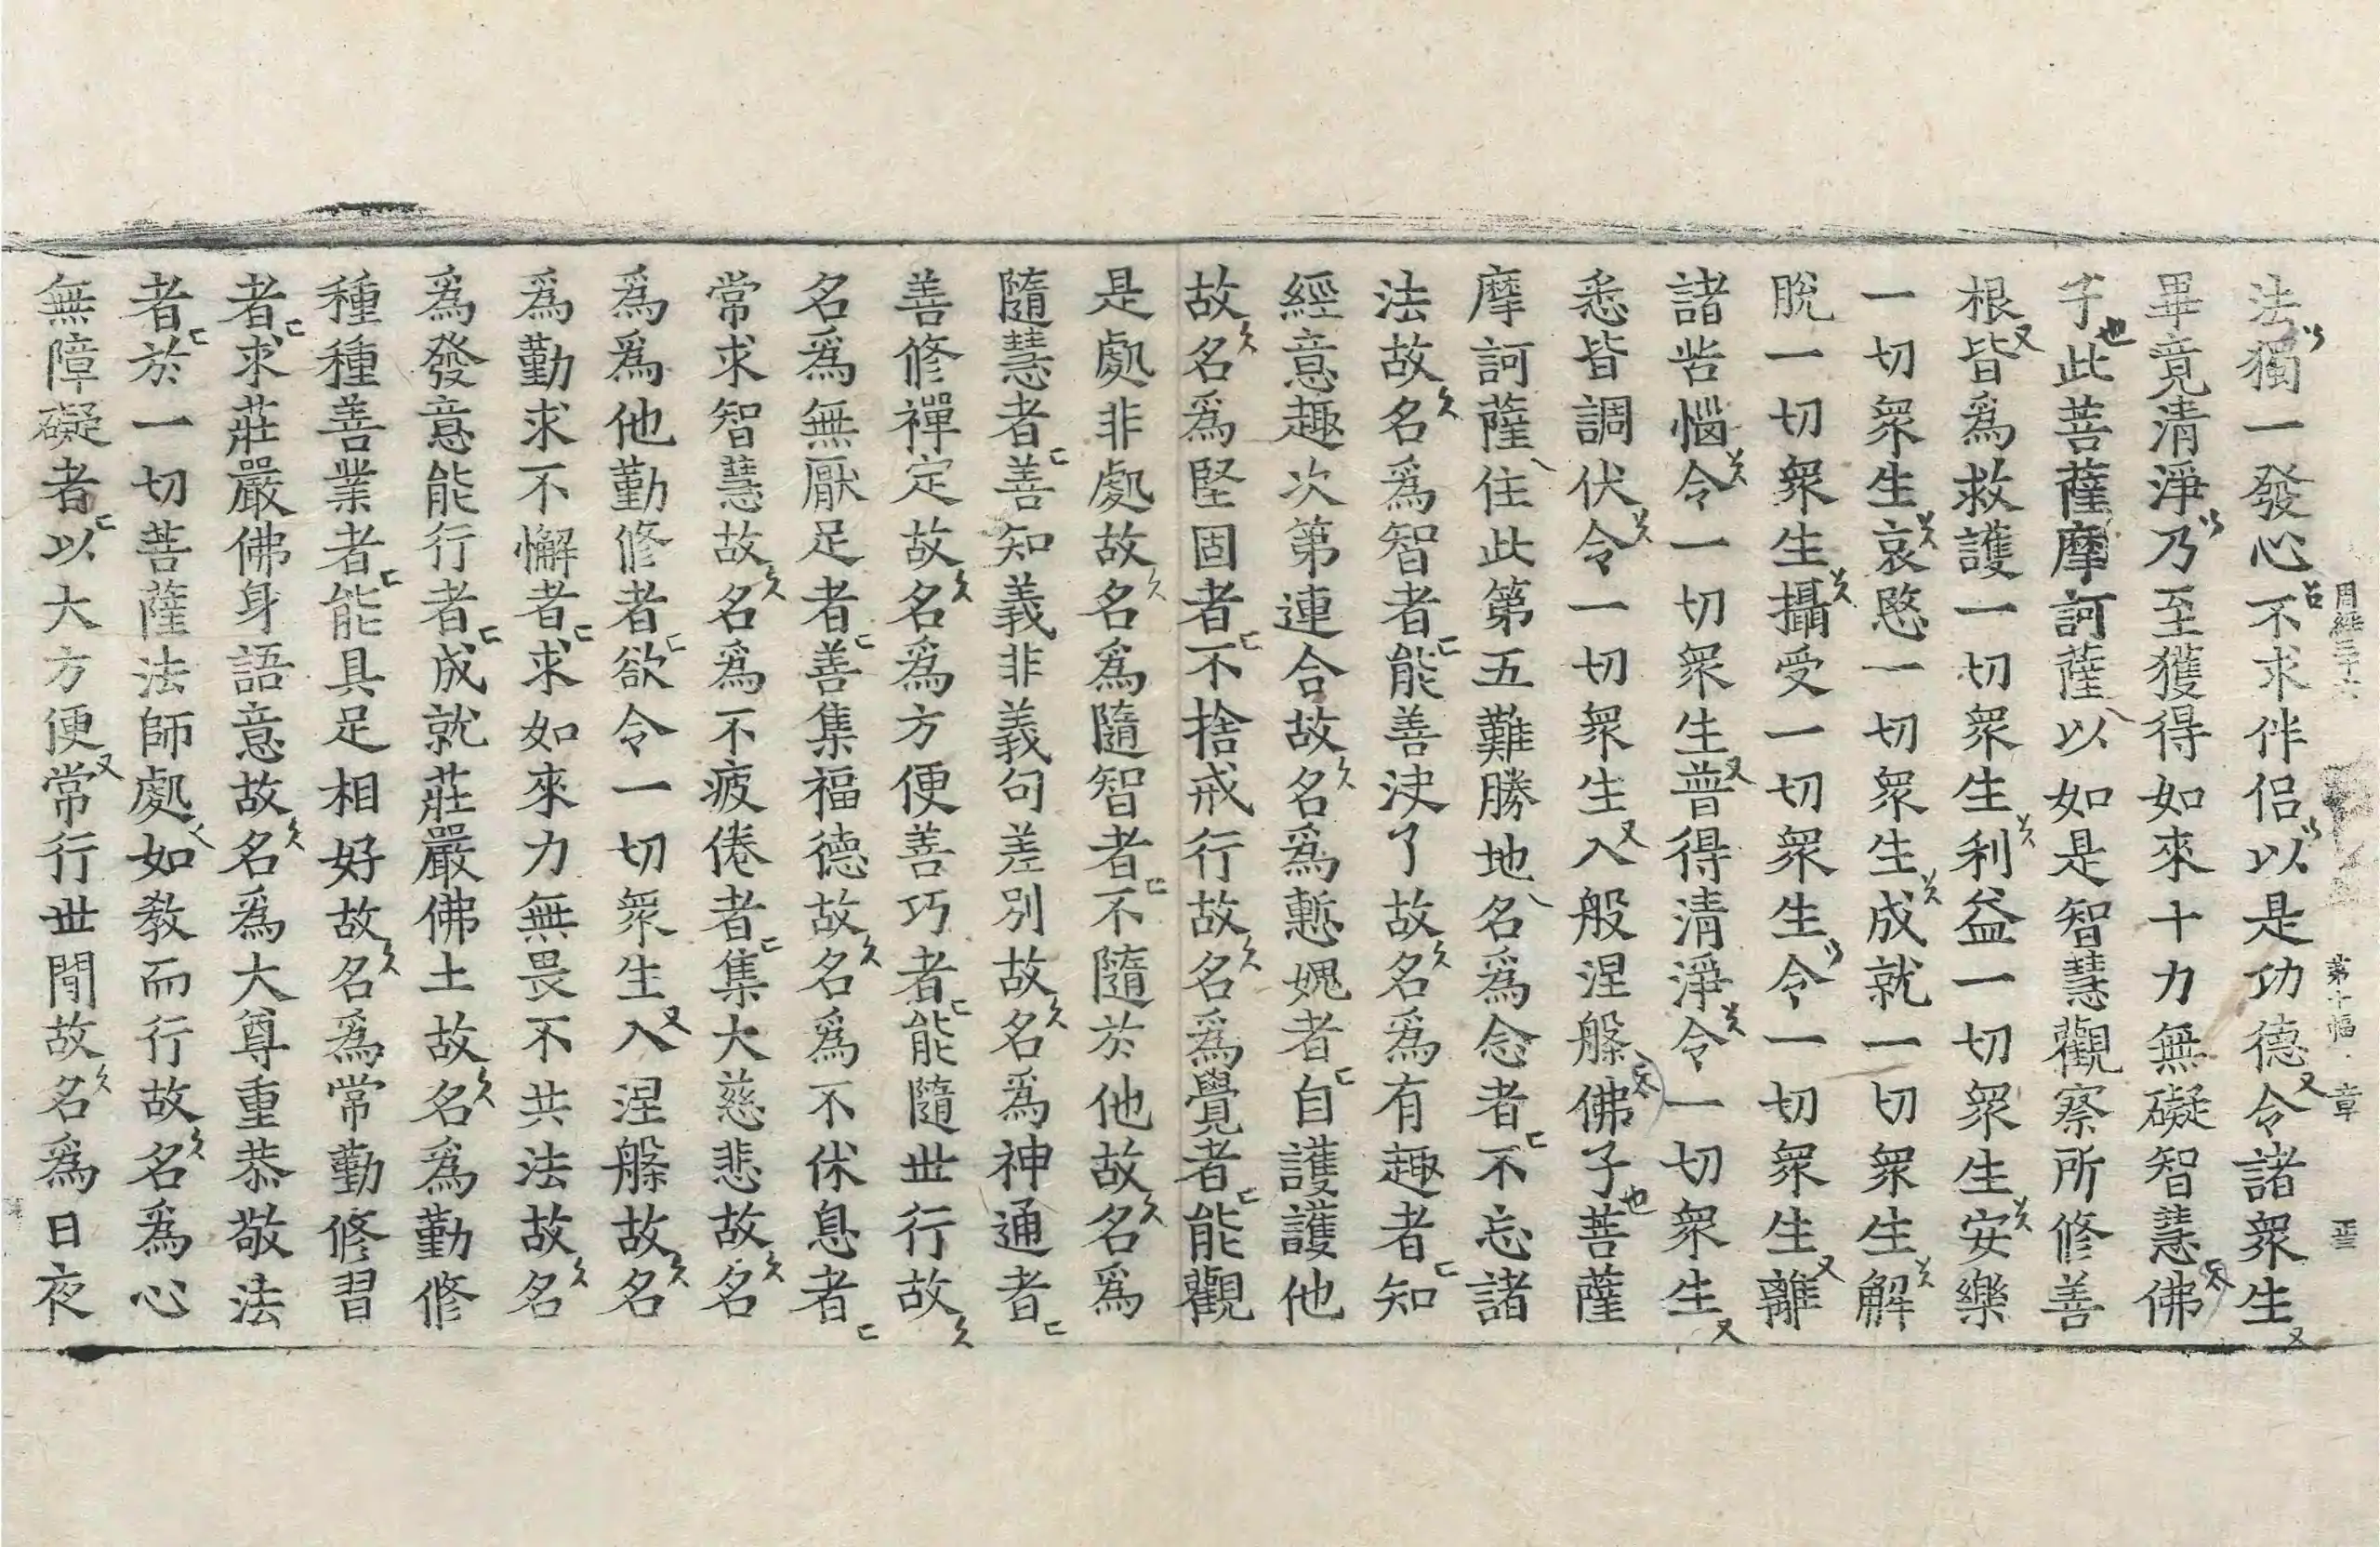 周經三十六 第十幅 章
法獨一發心不求伴侶以是功德令諸衆生
畢竟清淨乃至獲得如來十力無礙智慧佛
子此菩薩摩訶薩以如是智慧觀察所修善
根皆爲救護一切衆生利益一切衆生安樂
一切衆生哀愍一切衆生成就一切衆生解
脫一切衆生攝受一切衆生令一切衆生離
諸苦惱令一切衆生普得清淨令一切衆生
悉皆調伏令一切衆生入般涅槃佛子菩薩
摩訶薩住此第五難勝地名爲念者不忘諸
法故名爲智者能善決了故名爲有趣者知
經意趣次第連合故名爲慙愧者自護護他
故名爲堅固者不捨戒行故名爲覺者能觀
是處非處故名爲隨智者不隨於他故名爲
隨慧者善知義非義句差別故名爲神通者
善修禪定故名爲方便善巧者能隨世行故
名爲無厭足者善集福德故名爲不休息者
常求智慧故名爲不疲倦者集大慈悲故名
爲爲他勤修者欲令一切衆生入涅槃故名
爲勤求不懈者求如來力無畏不共法故名
爲發意能行者成就莊嚴佛土故名爲勤修
種種善業者能具足相好故名爲常勤修習
者求莊嚴佛身語意故名爲大尊重恭敬法
者於一切菩薩法師處如教而行故名爲心
無障礙者以大方便常行世間故名爲日夜